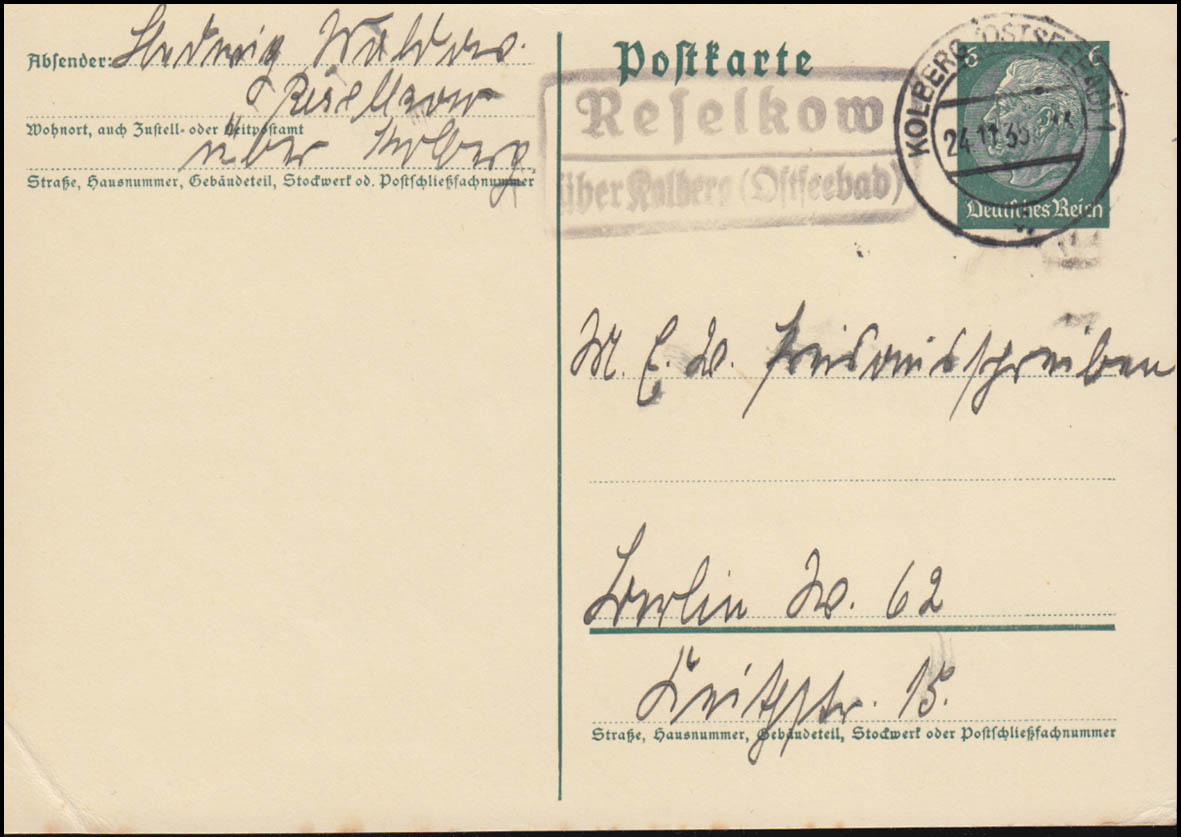 Absender: Hedwig
Reselkow
Wohnort, auch Zustell- oder Leitpostamt
über Kolberg
Straße, Hausnummer, Gebäudeteil, Stockwerk od. Postschließfachnummer
Postkarte
Reselkow
über Kolberg (Ostseebad)
KOLBERG (OSTSEEBAD) 1
24.11.
6 6
Deutsches Reich
M. E. W. Preisausschreiben
Berlin W. 62
Keithstr. 15.
Straße, Hausnummer, Gebäudeteil, Stockwerk oder Postschließfachnummer